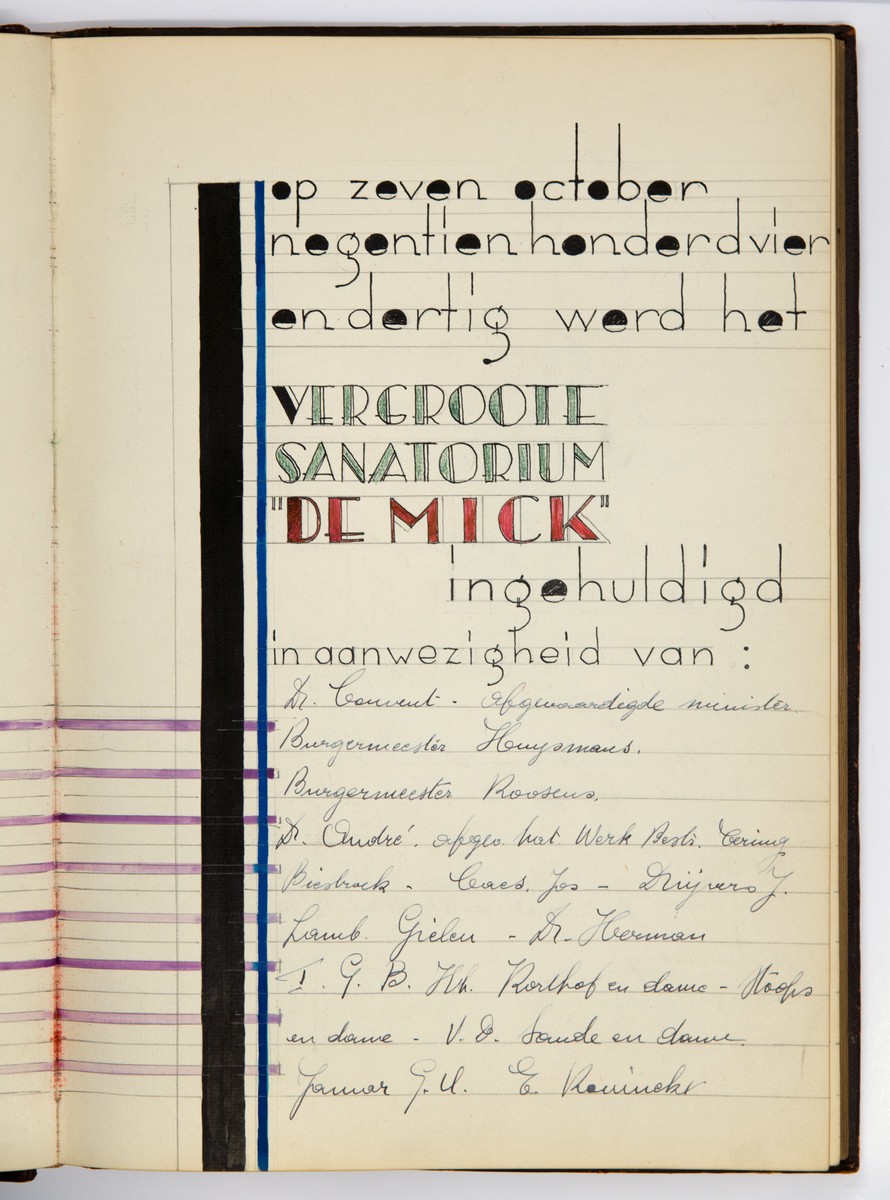 op zeven october
negentienhonderdvier
endertig werd het
VERGROOTE
SANATORIUM
"DE MICK"
ingehuldigd
in aanwezigheid van :
Dr. Convent - afgevaardigde minister.
Burgermeester Huysmans.
Burgermeester Roosens.
Dr. André. afgev. Nat Werk Bestr. Tering
Biesbroek - Caes. Jos - Druyvers J.
Lamb. Gielen - Dr. Herman
I. G. B. Hh. Korthof en dame -
en dame - V. D. Sande en dame.
G. U. E.